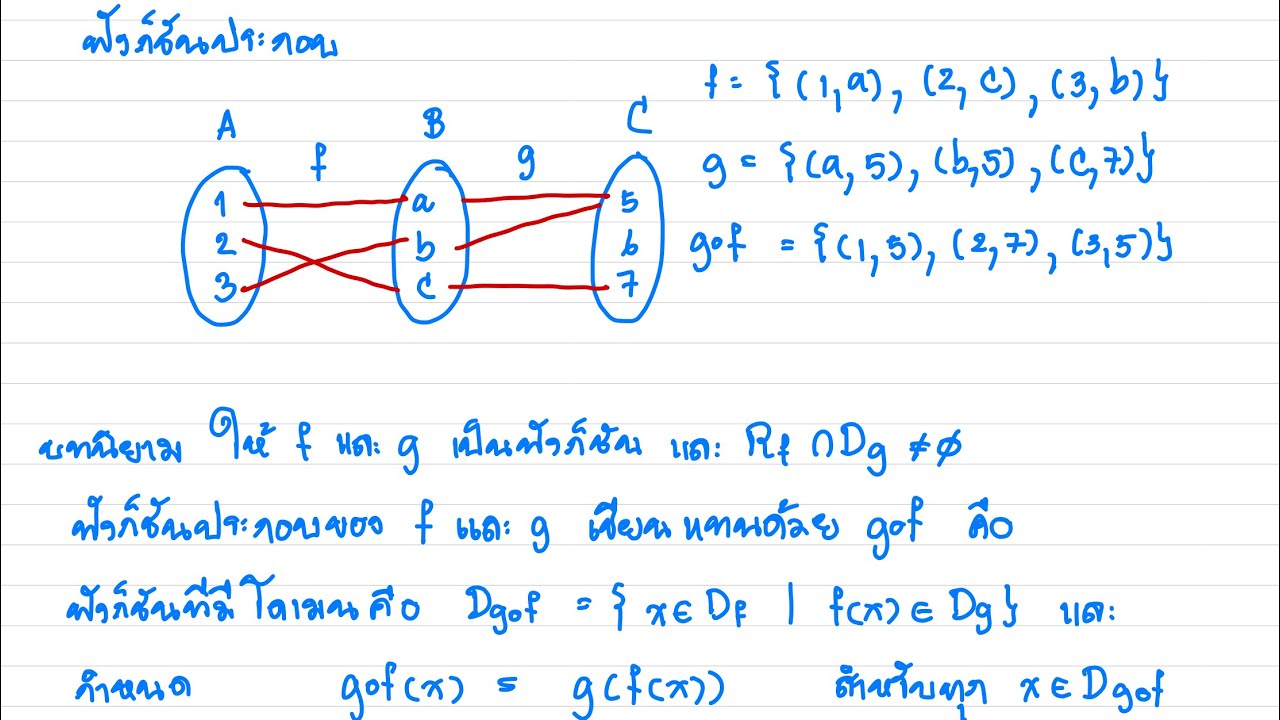 ฟังก์ชันประกอบ
f = {(1,a), (2,c), (3,b)}
A B C
f g
g = {(a,5), (b,5), (c,7)}
1 a 5
2 b 6
gof = {(1,5), (2,7), (3,5)}
3 c 7
บทนิยาม ให้ f และ g เป็นฟังก์ชัน และ Rf ∩ Dg ≠ ∅
ฟังก์ชันประกอบของ f และ g เขียนแทนด้วย gof คือ
ฟังก์ชันที่มีโดเมนคือ Dgof = { x ∈ Df | f(x) ∈ Dg} และ
กำหนด gof(x) = g(f(x)) สำหรับทุก x ∈ Dgof